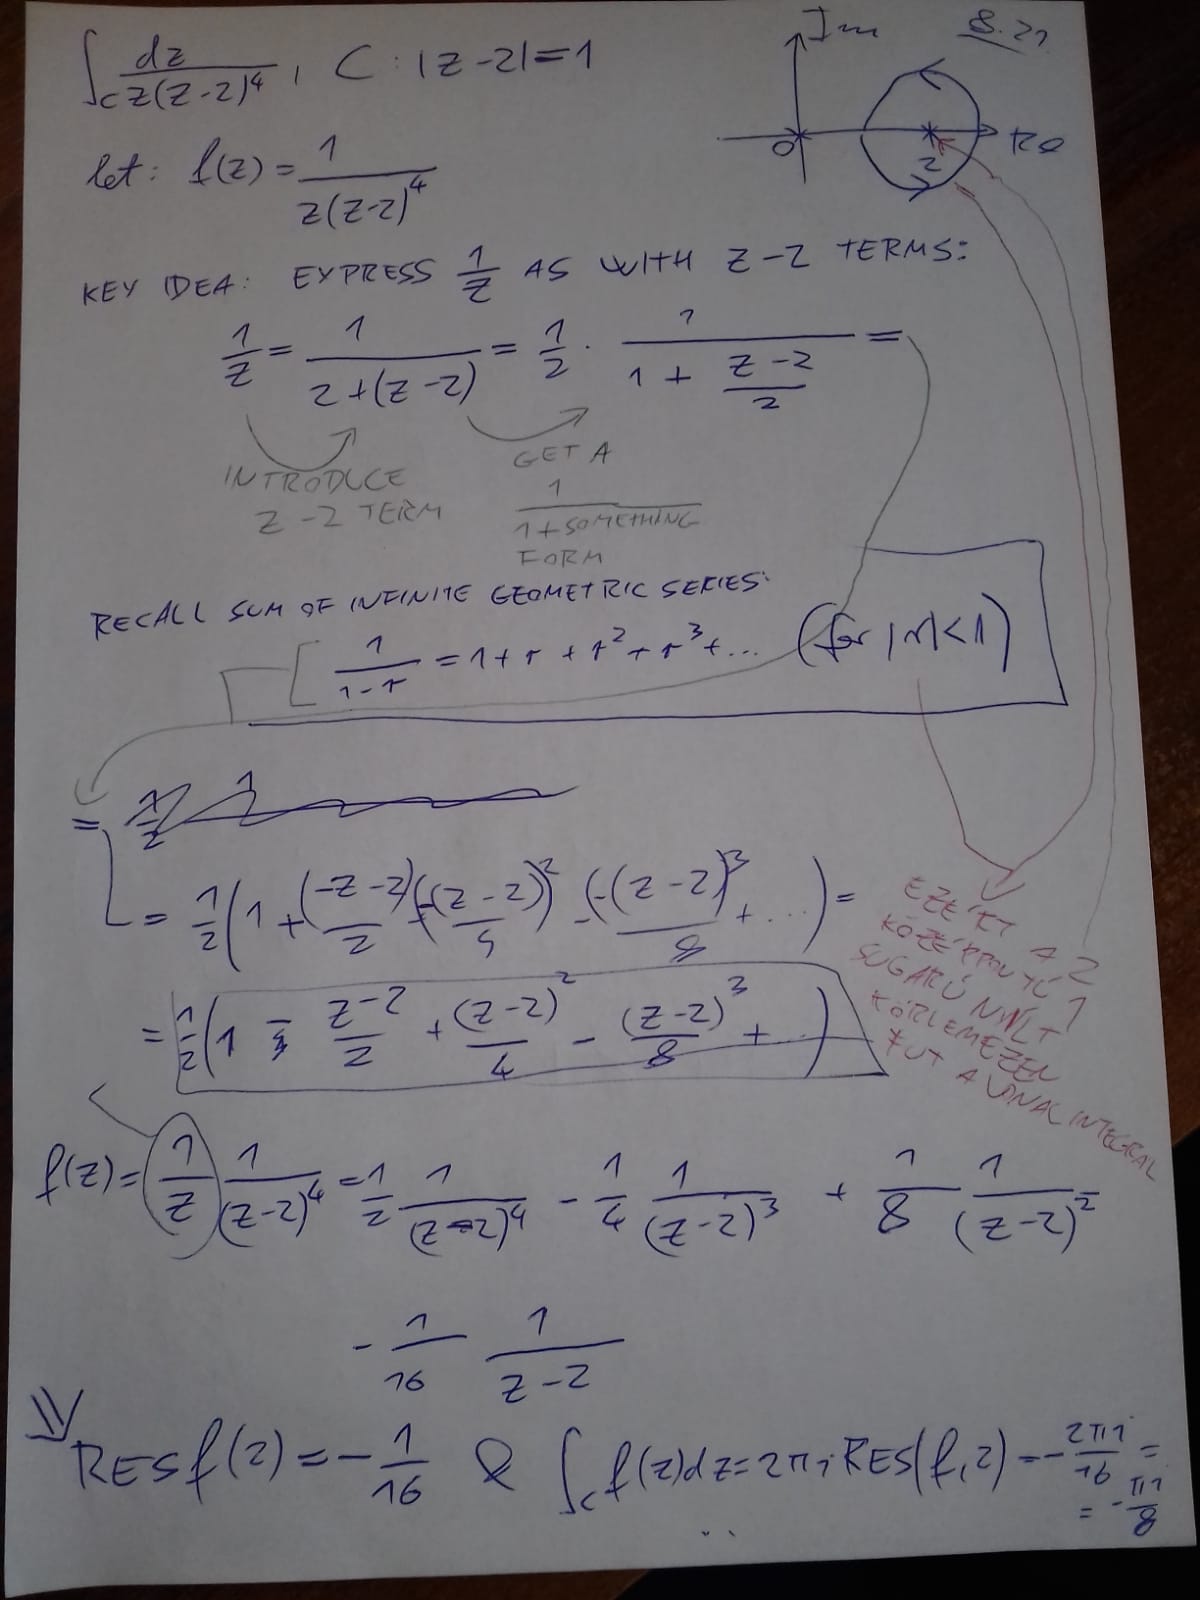 ∫_C dz/(z(z-2)^4), C: |z-2|=1
Im
8.21
0
2
Re
let: f(z) = 1/(z(z-2)^4)
KEY IDEA: EXPRESS 1/z AS WITH z-2 TERMS:
1/z = 1/(2+(z-2)) = 1/2 · 1/(1 + (z-2)/2) =
INTRODUCE
z-2 TERM
GET A
1/(1+SOMETHING)
FORM
RECALL SUM OF INFINITE GEOMETRIC SERIES:
1/(1-r) = 1+r+r^2+r^3+... (for |r|<1)
=
= 1/2 (1 + (-z-2)/2 + (-(z-2))^2/4 - (-(z-2))^3/8 + ...) =
= 1/2 (1 - (z-2)/2 + (z-2)^2/4 - (z-2)^3/8 + ...)
EZÉRT A 2
KÖZÉPPONTÚ 1
SUGARÚ NYÍLT
KÖRLEMEZEN
FUT A VONALINTEGRÁL
f(z) = 1/z 1/(z-2)^4 = 1/2 1/(z-2)^4 - 1/4 1/(z-2)^3 + 1/8 1/(z-2)^2
- 1/16 1/(z-2)
⇓
RES f(2) = -1/16 & ∫_C f(z)dz = 2πi RES(f,2) = -2πi/16 =
= -πi/8